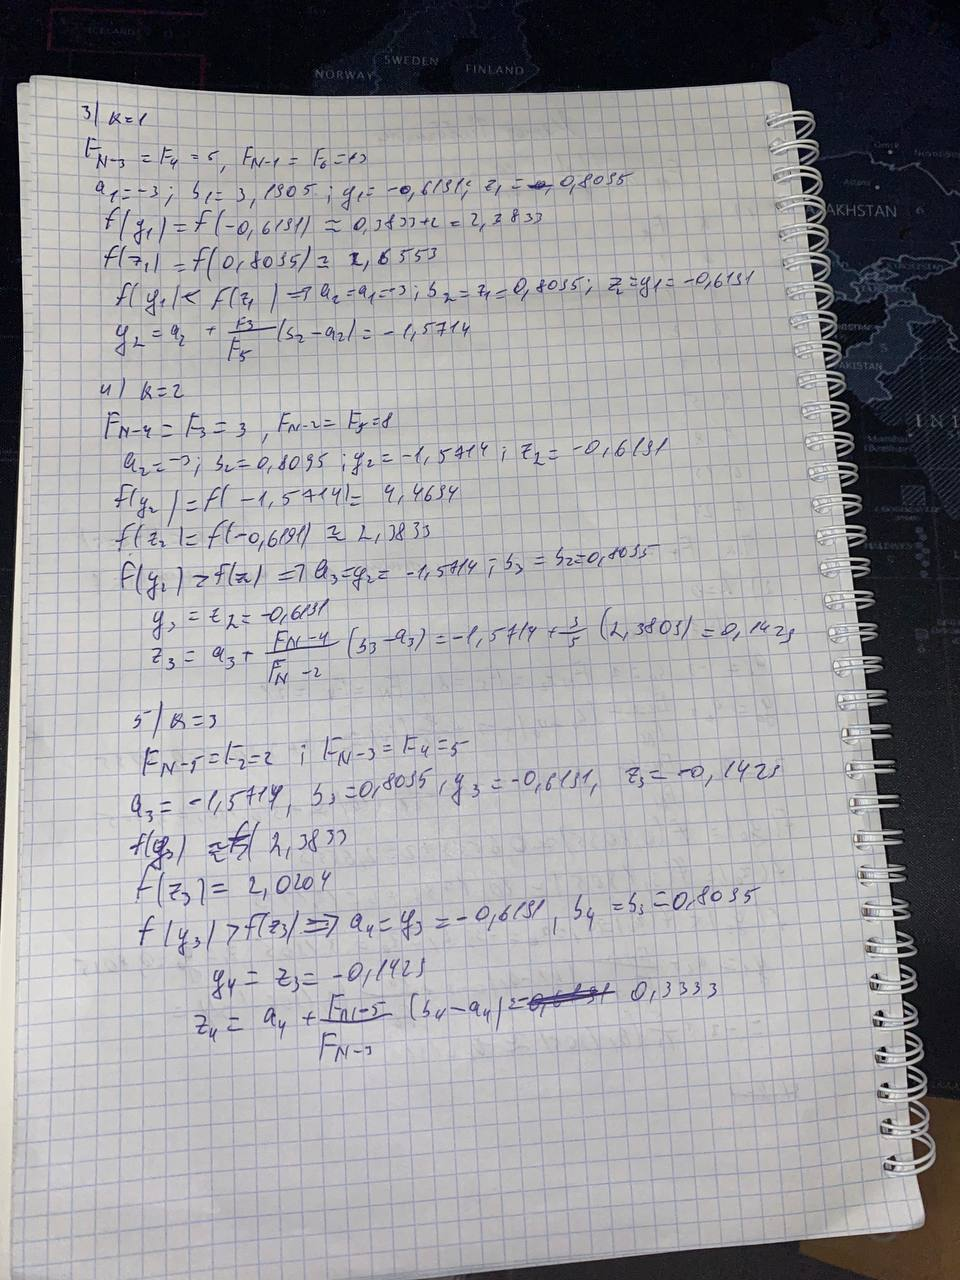 ICELAND
NORWAY
SWEDEN
FINLAND
KAZAKHSTAN
PAKISTAN
INDI
3) k=1
F_{N-3} = F_4 = 5, F_{N-1} = F_6 = 13
a_1 = -3; b_1 = 3,1905; y_1 = -0,6191; z_1 = 0,8095
f(y_1) = f(-0,6191) ≈ 0,3833+2 = 2,3833
f(z_1) = f(0,8095) ≈ 2,6553
f(y_1) < f(z_1) => a_2 = a_1 = -3; b_2 = z_1 = 0,8095; z_2 = y_1 = -0,6191
y_2 = a_2 + F_3/F_5 (b_2 - a_2) = -1,5714
4) k=2
F_{N-4} = F_3 = 3, F_{N-2} = F_5 = 8
a_2 = -3; b_2 = 0,8095; y_2 = -1,5714; z_2 = -0,6191
f(y_2) = f(-1,5714) = 4,4694
f(z_2) = f(-0,6191) ≈ 2,3833
f(y_2) > f(z) => a_3 = y_2 = -1,5714; b_3 = b_2 = 0,8095
y_3 = z_2 = -0,6191
z_3 = a_3 + F_{N-4}/F_{N-2} (b_3 - a_3) = -1,5714 + 3/5 (2,3809) = 0,1429
5) k=3
F_{N-5} = F_2 = 2; F_{N-3} = F_4 = 5
a_3 = -1,5714, b_3 = 0,8095, y_3 = -0,6191, z_3 = -0,1429
f(y_3) ≈ 2,3833
f(z_3) = 2,0204
f(y_3) > f(z_3) => a_4 = y_3 = -0,6191, b_4 = b_3 = 0,8095
y_4 = z_3 = -0,1429
z_4 = a_4 + F_{N-5}/F_{N-3} (b_4 - a_4) = 0,3333